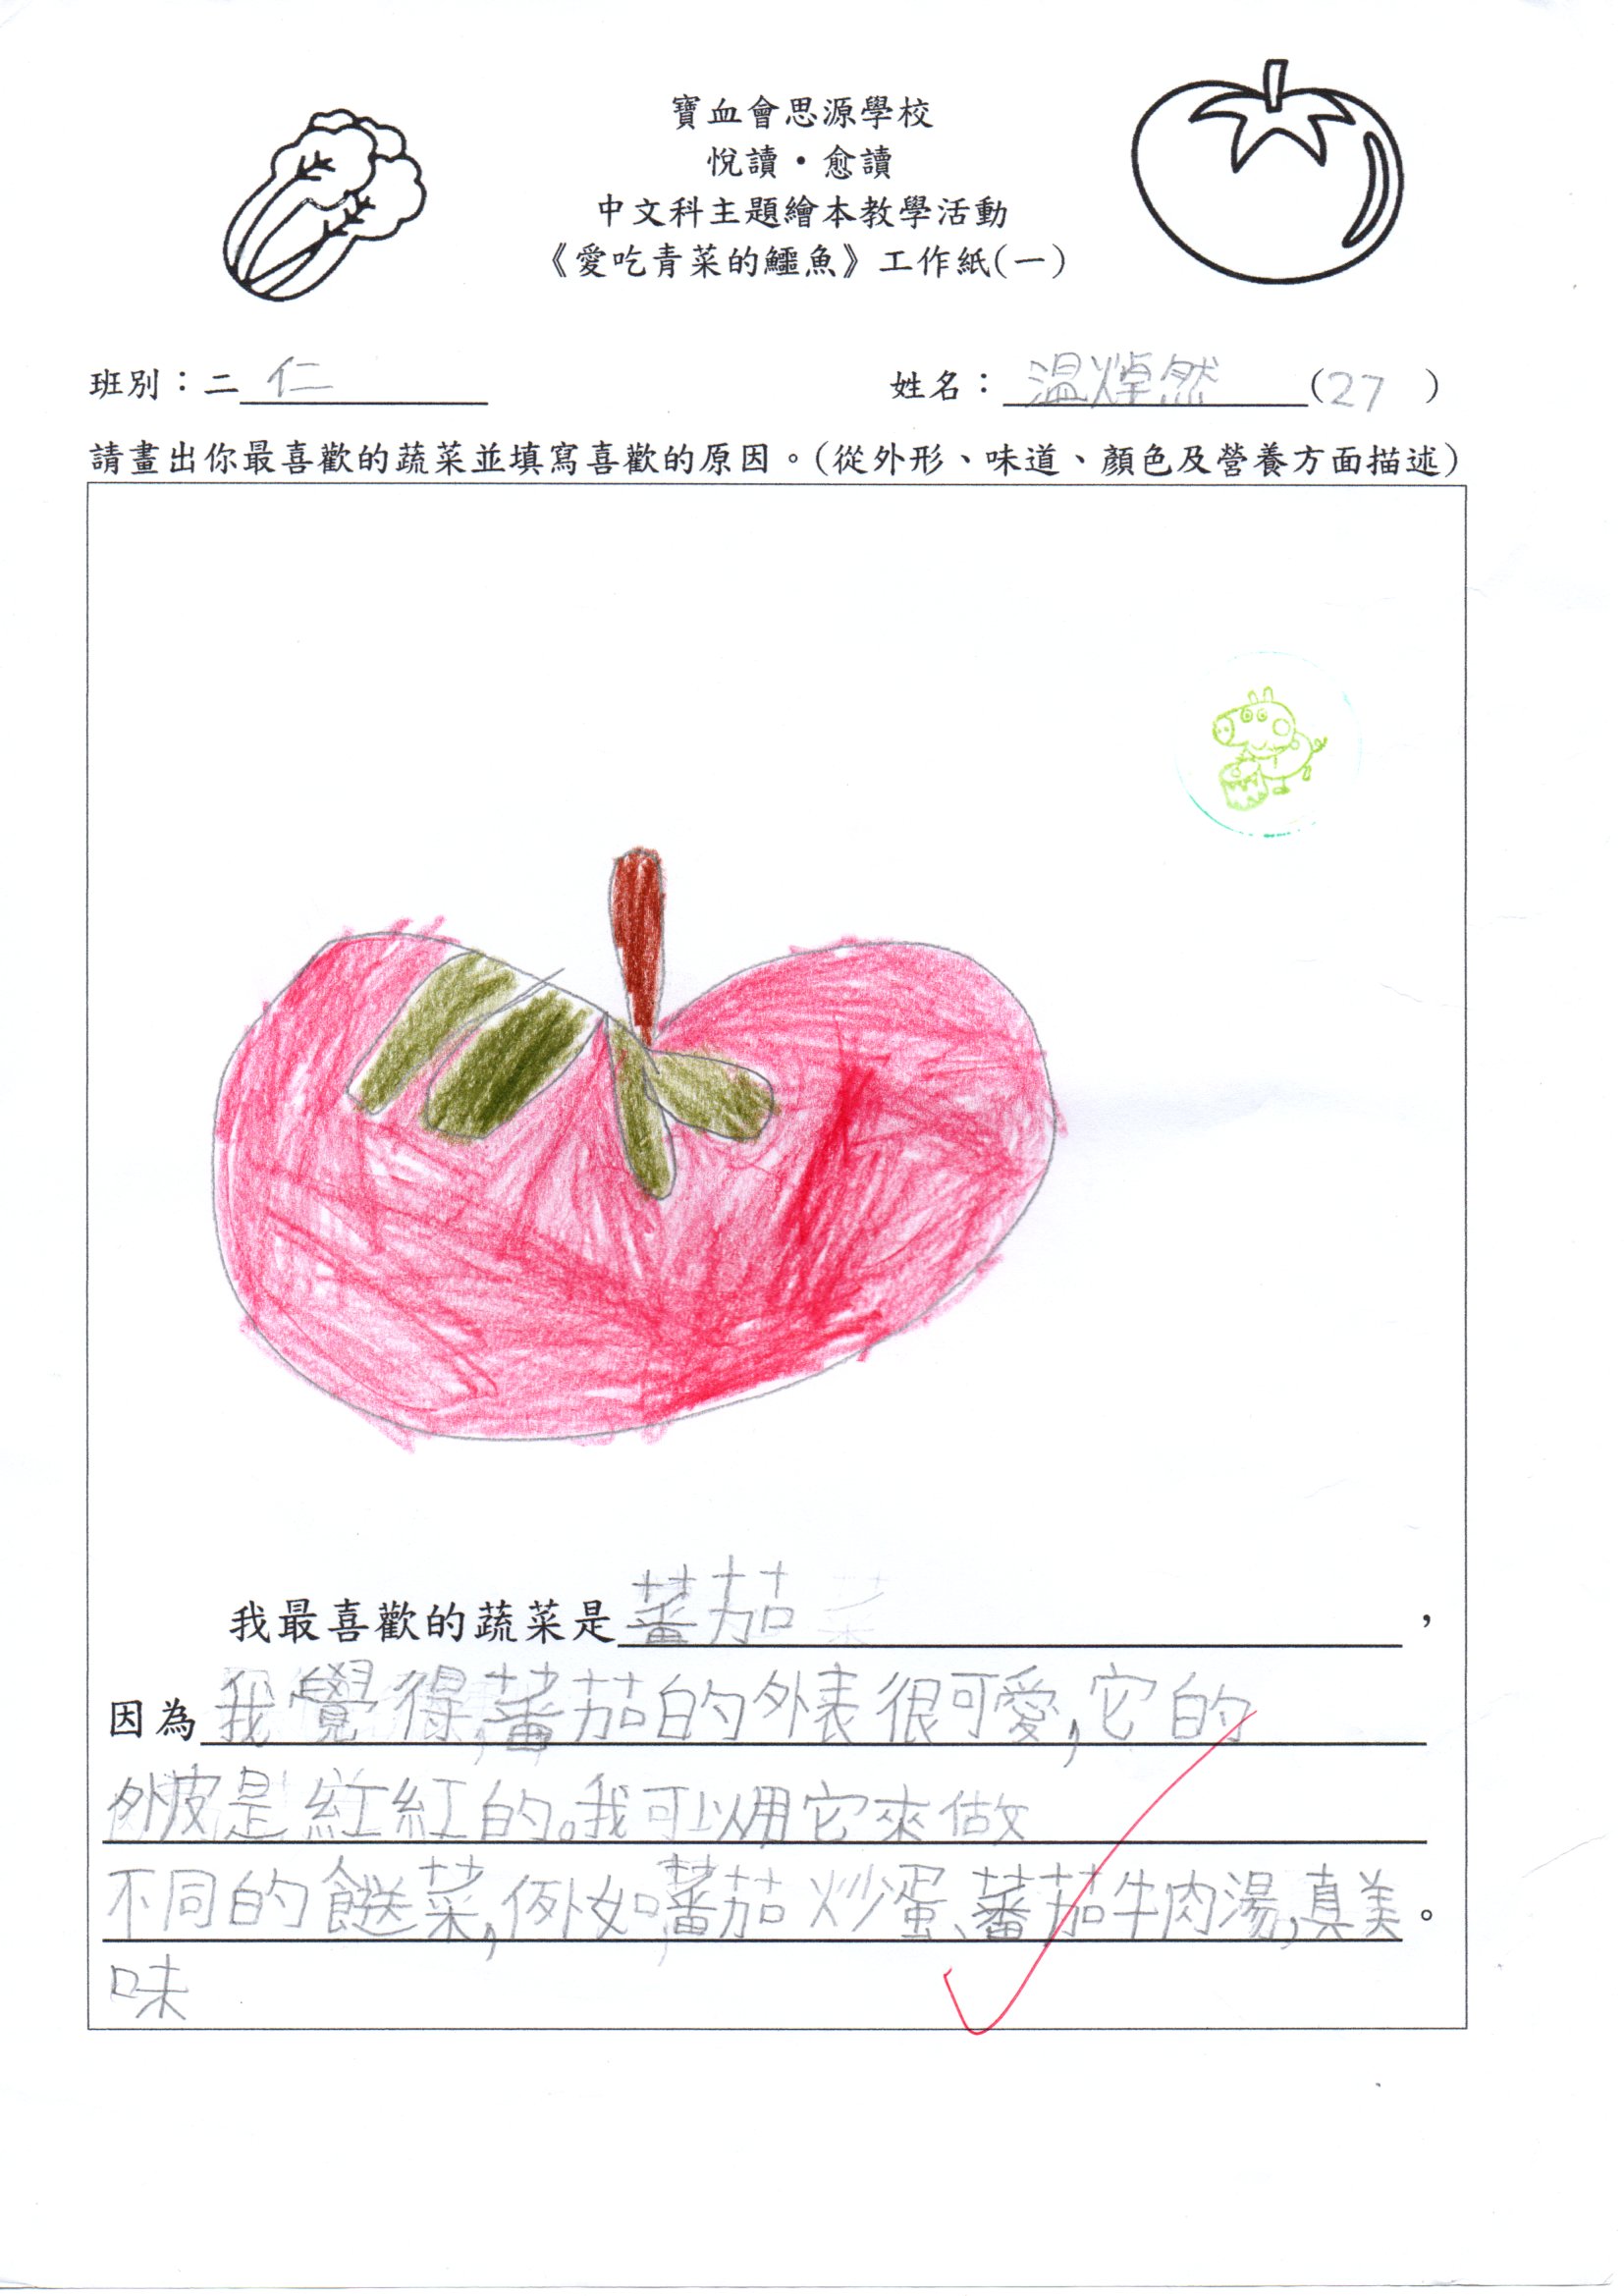 寶血會思源學校
悅讀・愈讀
中文科主題繪本教學活動
《愛吃青菜的鱷魚》工作紙(一)
班別：二 仁 姓名： 溫焯然 (27 )
請畫出你最喜歡的蔬菜並填寫喜歡的原因。(從外形、味道、顏色及營養方面描述)
我最喜歡的蔬菜是蕃茄，
因為我覺得,蕃茄的外表很可愛,它的
外皮是紅紅的。我可以用它來做
不同的餸菜,例如,蕃茄炒蛋、蕃茄牛肉湯,真美。
味